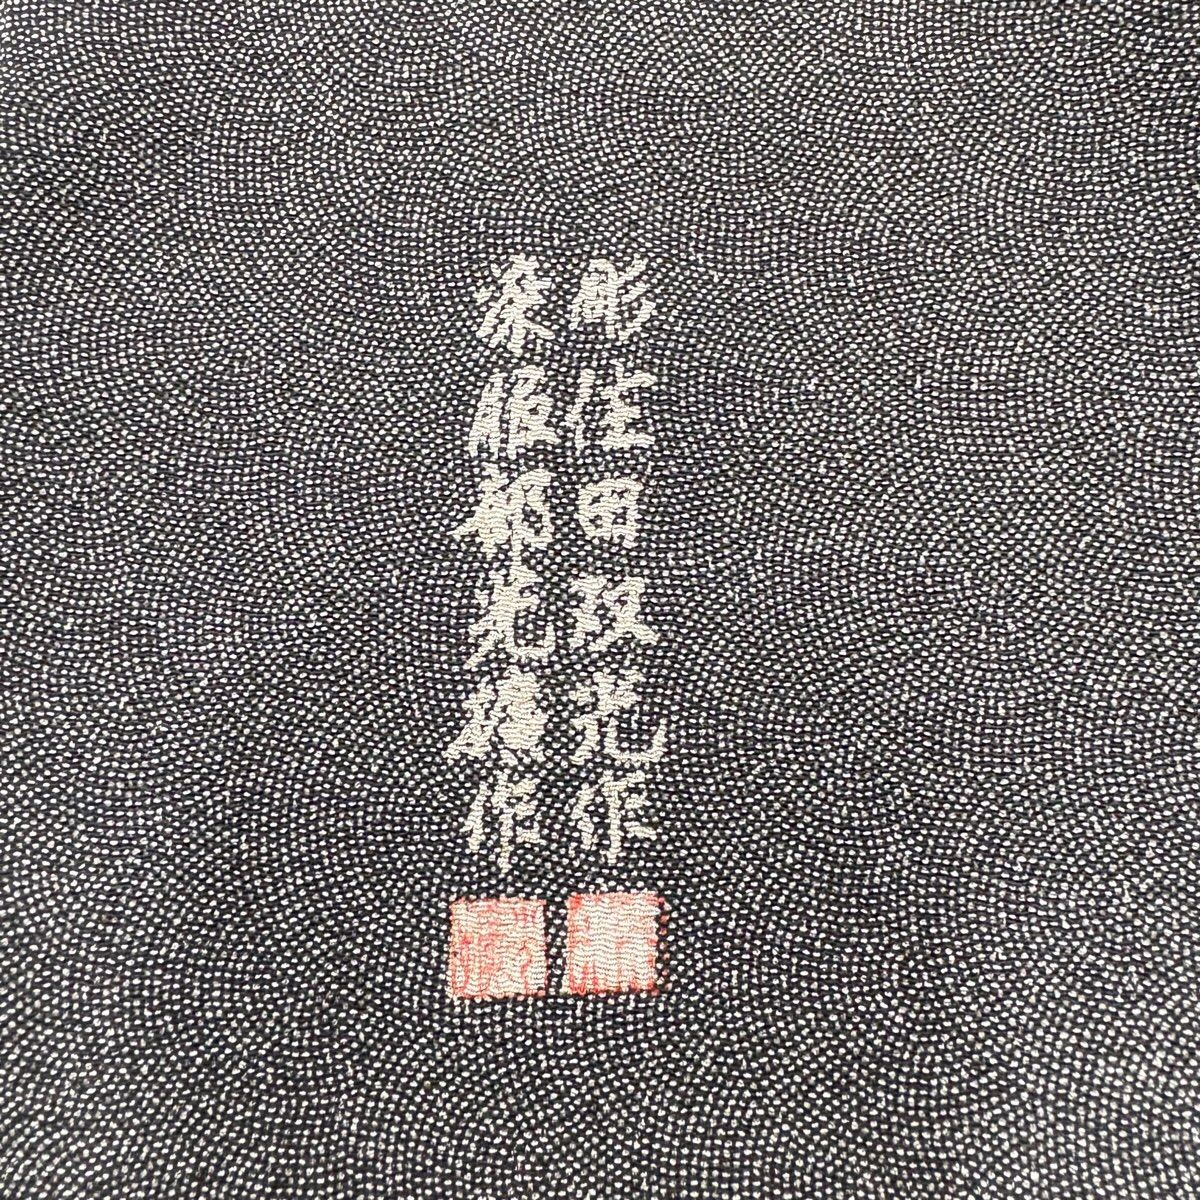 彫住田光作
染服部光作